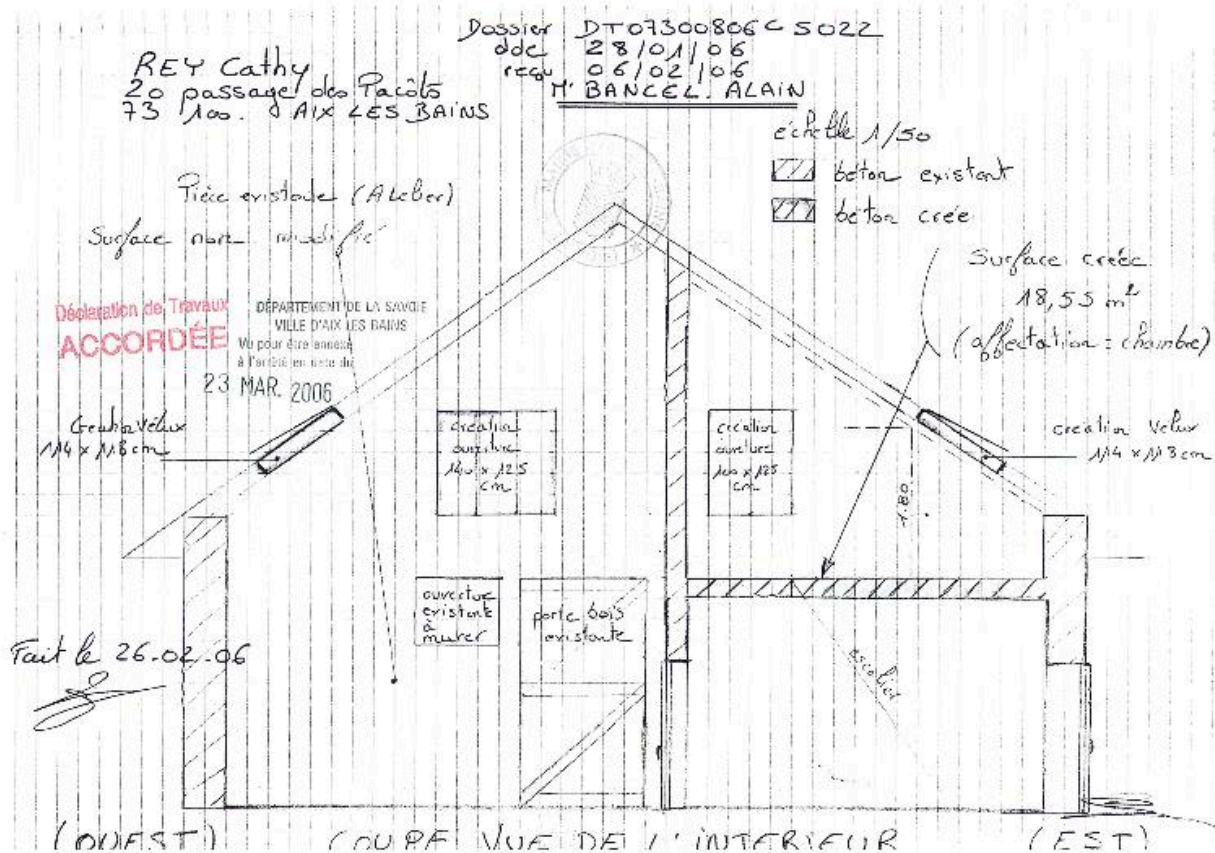 Dossier DT07300806C5022
dde 28/01/06
reçu 06/02/06
Mr BANCEL. ALAIN
REY Cathy
20 passage des Pacôts
73 100. AIX LES BAINS
échelle 1/50
béton existant
béton crée
Pièce existante (Atelier)
Surface non modifié
Surface créée
18,55 m²
(affectation : chambre)
Déclaration de Travaux
ACCORDÉE
DÉPARTEMENT DE LA SAVOIE
VILLE D'AIX LES BAINS
Vu pour être annexé
à l'arrêté en date du
23 MAR. 2006
Création Vélux
114 x 118 cm
création
ouverture
140 x 125
cm
création
ouverture
100 x 125
cm
création Velux
114 x 118 cm
1.80
ouverture
existante
à
murer
porte bois
existante
escalier
Fait le 26.02.06
(OUEST) COUPE VUE DE L'INTERIEUR (EST)